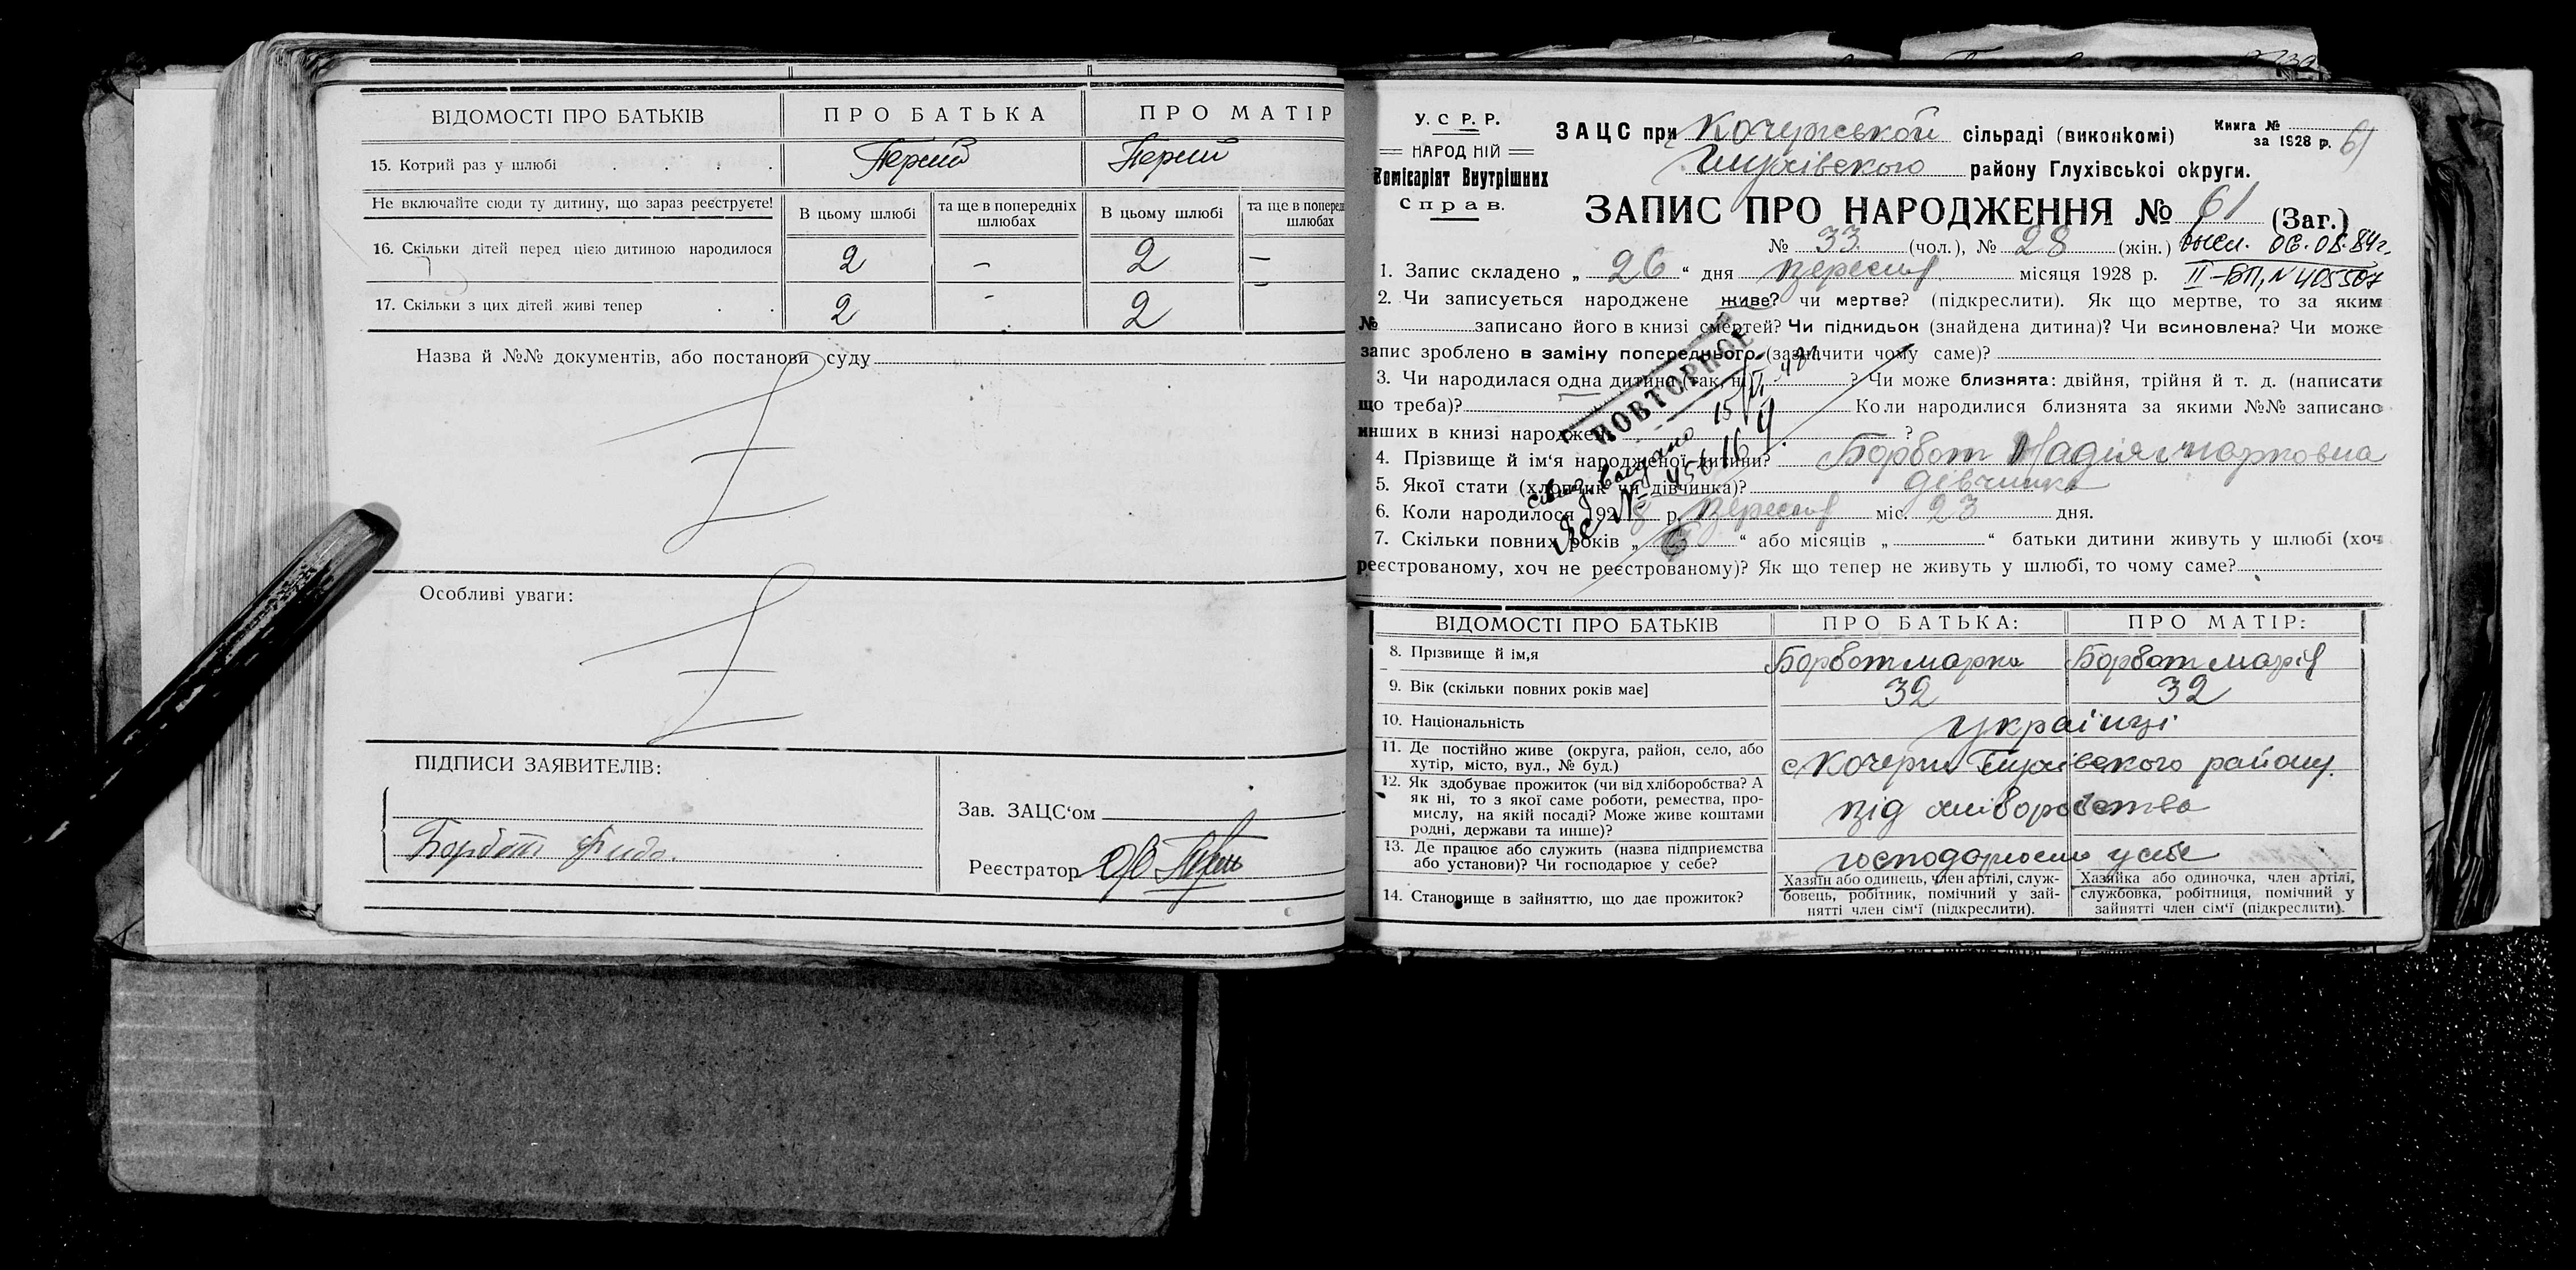 ВІДОМОСТІ ПРО БАТЬКІВ
ПРО БАТЬКА
ПРО МАТІР
15. Котрий раз у шлюбі
Перший
Перший
Не включайте сюди ту дитину, що зараз реєструєте!
В цьому шлюбі
та ще в попередніх шлюбах
В цьому шлюбі
та ще в поперед
шлюбах
16. Скільки дітей перед цією дитиною народилося
2 - 2 -
17. Скільки з цих дітей живі тепер
2 - 2 -
Назва й №№ документів, або постанови суду
Особливі уваги:
ПІДПИСИ ЗАЯВИТЕЛІВ:
Борбот
Зав. ЗАЦС'ом
Реєстратор
У. С. Р. Р.
НАРОДНІЙ
Комісаріят Внутрішних
Справ.
ЗАЦС при Кочергській сільраді (виконкомі)
Книга №
за 1928 р. 61
Глухівского району Глухівської округи.
ЗАПИС ПРО НАРОДЖЕННЯ № 61 (Заг.)
№ 33 (чол.), № 28 (жін.)
высл. 06.08.84г.
II-БП, N 405507
1. Запис складено „ 26 “ дня вересня місяця 1928 р.
2. Чи записується народжене живе? чи мертве? (підкреслити). Як що мертве, то за яким
№ записано його в книзі смертей? Чи підкидьок (знайдена дитина)? Чи всиновлена? Чи може
запис зроблено в заміну попереднього (зазначити чому саме)?
3. Чи народилася одна дитина (так, ні) ? Чи може близнята: двійня, трійня й т. д. (написати
що треба)? Коли народилися близнята за якими №№ записано
инших в книзі народжень ?
ПОВТОРНОЕ
свид. выдано 15
4. Прізвище й ім'я народженої дитини? Борбот Надія Марковна
5. Якої стати (хлопчик чи дівчинка)? дівчинка
6. Коли народилося 1928 р. вересня міс. 23 дня.
7. Скільки повних років „ 6 “ або місяців „ “ батьки дитини живуть у шлюбі (хоч
реєстрованому, хоч не реєстрованому)? Як що тепер не живуть у шлюбі, то чому саме?
ВІДОМОСТІ ПРО БАТЬКІВ
ПРО БАТЬКА:
ПРО МАТІР:
8. Прізвище й ім,я
Борбот Марко
Борбот Марія
9. Вік (скільки повних років має]
32
32
10. Національність
українці
11. Де постійно живе (округа, район, село, або
хутір, місто, вул., № буд.)
с Кочерги Глухівского району.
12. Як здобуває прожиток (чи від хліборобства? А
як ні, то з якої саме роботи, ремества, про-
мислу, на якій посаді? Може живе коштами
родні, держави та инше)?
від хліборобства
13. Де працює або служить (назва підприємства
або установи)? Чи господарює у себе?
14. Становище в зайняттю, що дає прожиток?
Хазяїн або одинець, член артілі, служ-
бовець, робітник, помічний у зай-
нятті член сім'ї (підкреслити).
Хазяйка або одиночка, член артілі,
службовка, робітниця, помічний у
зайнятті член сім'ї (підкреслити).